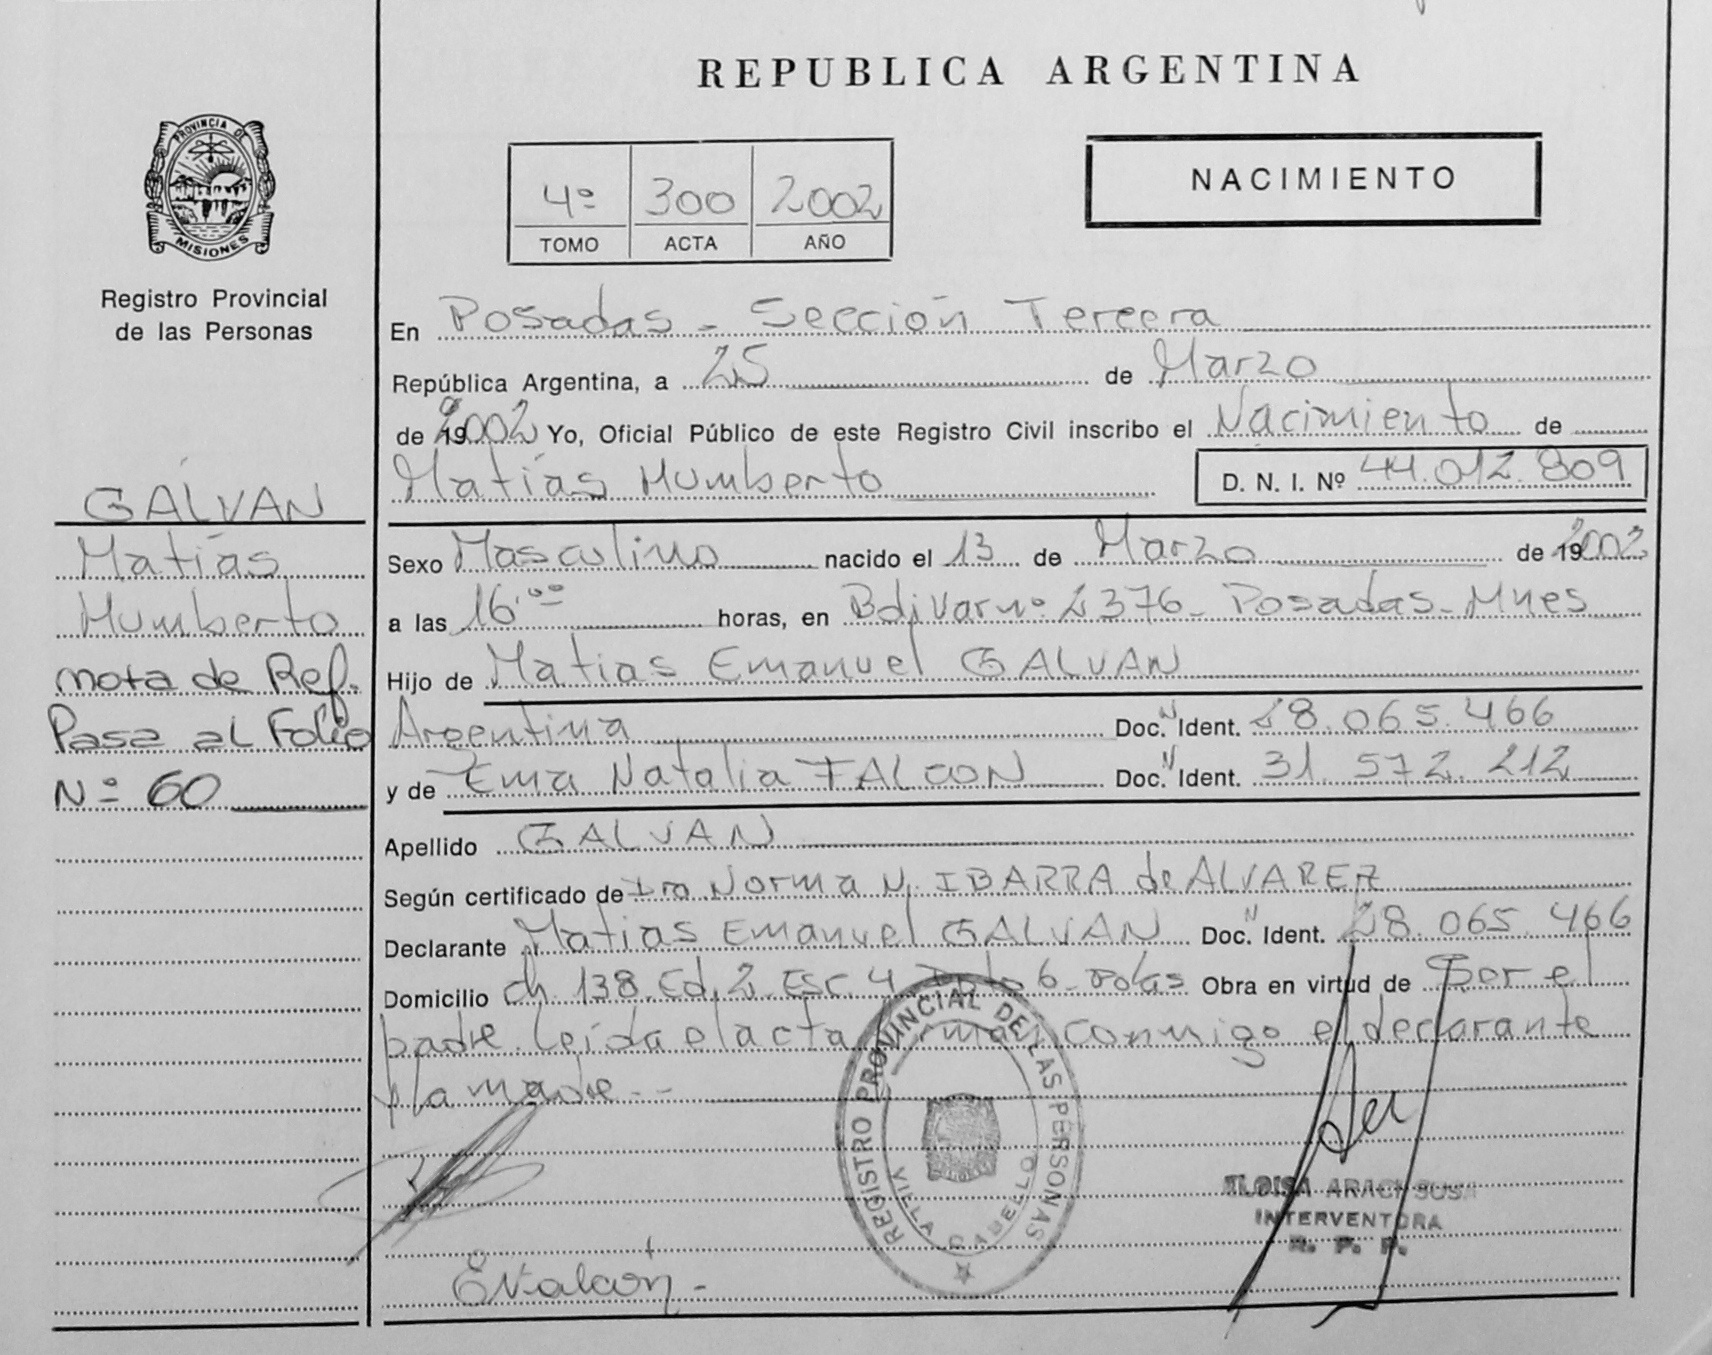 REPUBLICA ARGENTINA
PROVINCIA DE
MISIONES
Registro Provincial
de las Personas
4º 300 2002
TOMO ACTA AÑO
NACIMIENTO
En Posadas - Sección Tercera
República Argentina, a 25 de Marzo
de 2002 Yo, Oficial Público de este Registro Civil inscribo el Nacimiento de
Matías Humberto D. N. I. Nº 44.012.809
GALVAN
Matías
Humberto
nota de Ref.
Pasa al Folio
Nº 60
Sexo Masculino nacido el 13 de Marzo de 19 2002
a las 16'00 horas, en Bolivar nº 2376 - Posadas - Mnes
Hijo de Matias Emanuel GALVAN
Argentina Doc. N Ident. 28.065.466
y de Ema Natalia FALCON Doc. N Ident. 31.572.212
Apellido GALVAN
Según certificado de Dra Norma N. IBARRA de ALVAREZ
Declarante Matias Emanuel GALVAN Doc. N Ident. 28.065.466
Domicilio ch. 138. Ed. 2. Esc. 4 Dpto 6 - Pdas Obra en virtud de Ser el
padre. Leída el acta firman conmigo el declarante
y la madre. -
REGISTRO PROVINCIAL DE LAS PERSONAS
VILLA CABELLO
ELOISA ARACI SOSA
INTERVENTORA
R. P. P.